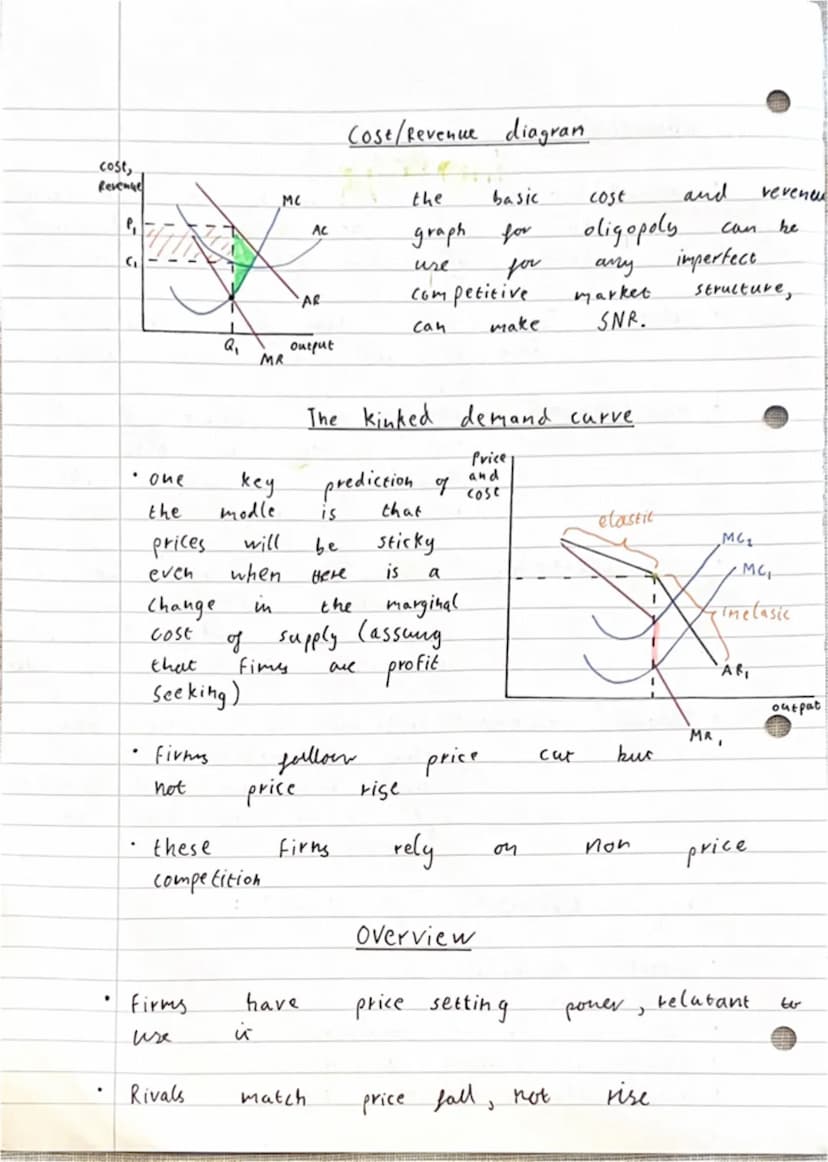 Cost/Revenue diagram
cost,
Revenue
MC
P₁
AC
C₁
AR
Q₁
output
MR
the basic cost and revenue
graph for oligopoly can be
use for any imperfect
competitive market structure,
can make SNR.
The kinked demand curve
Price
and
cost
• one key prediction of
the modle is that
prices will be sticky
even when there is a
change in the marginal
cost of supply (assung
that firms are profit
seeking)
elastic
MC₂
MC₁
inelasic
AR₁
output
MR₁
• firms follow price cut but
not price rise
• these firms rely on non price
competition
Overview
• firms have price setting power, relutant to
use it
• Rivals match price fall, not rise